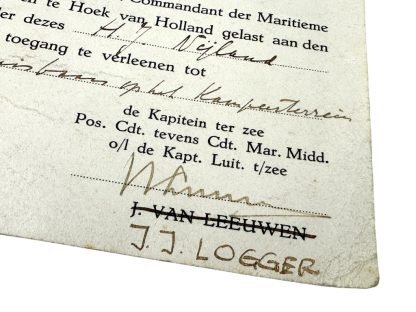 Commandant der Maritieme
en te Hoek van Holland gelast aan den
der dezes H J Nijland
toegang te verleenen tot
op het Kampenterrein
de Kapitein ter zee
Pos. Cdt. tevens Cdt. Mar. Midd.
o/l de Kapt. Luit. t/zee
J. VAN LEEUWEN
J. J. LOGGER